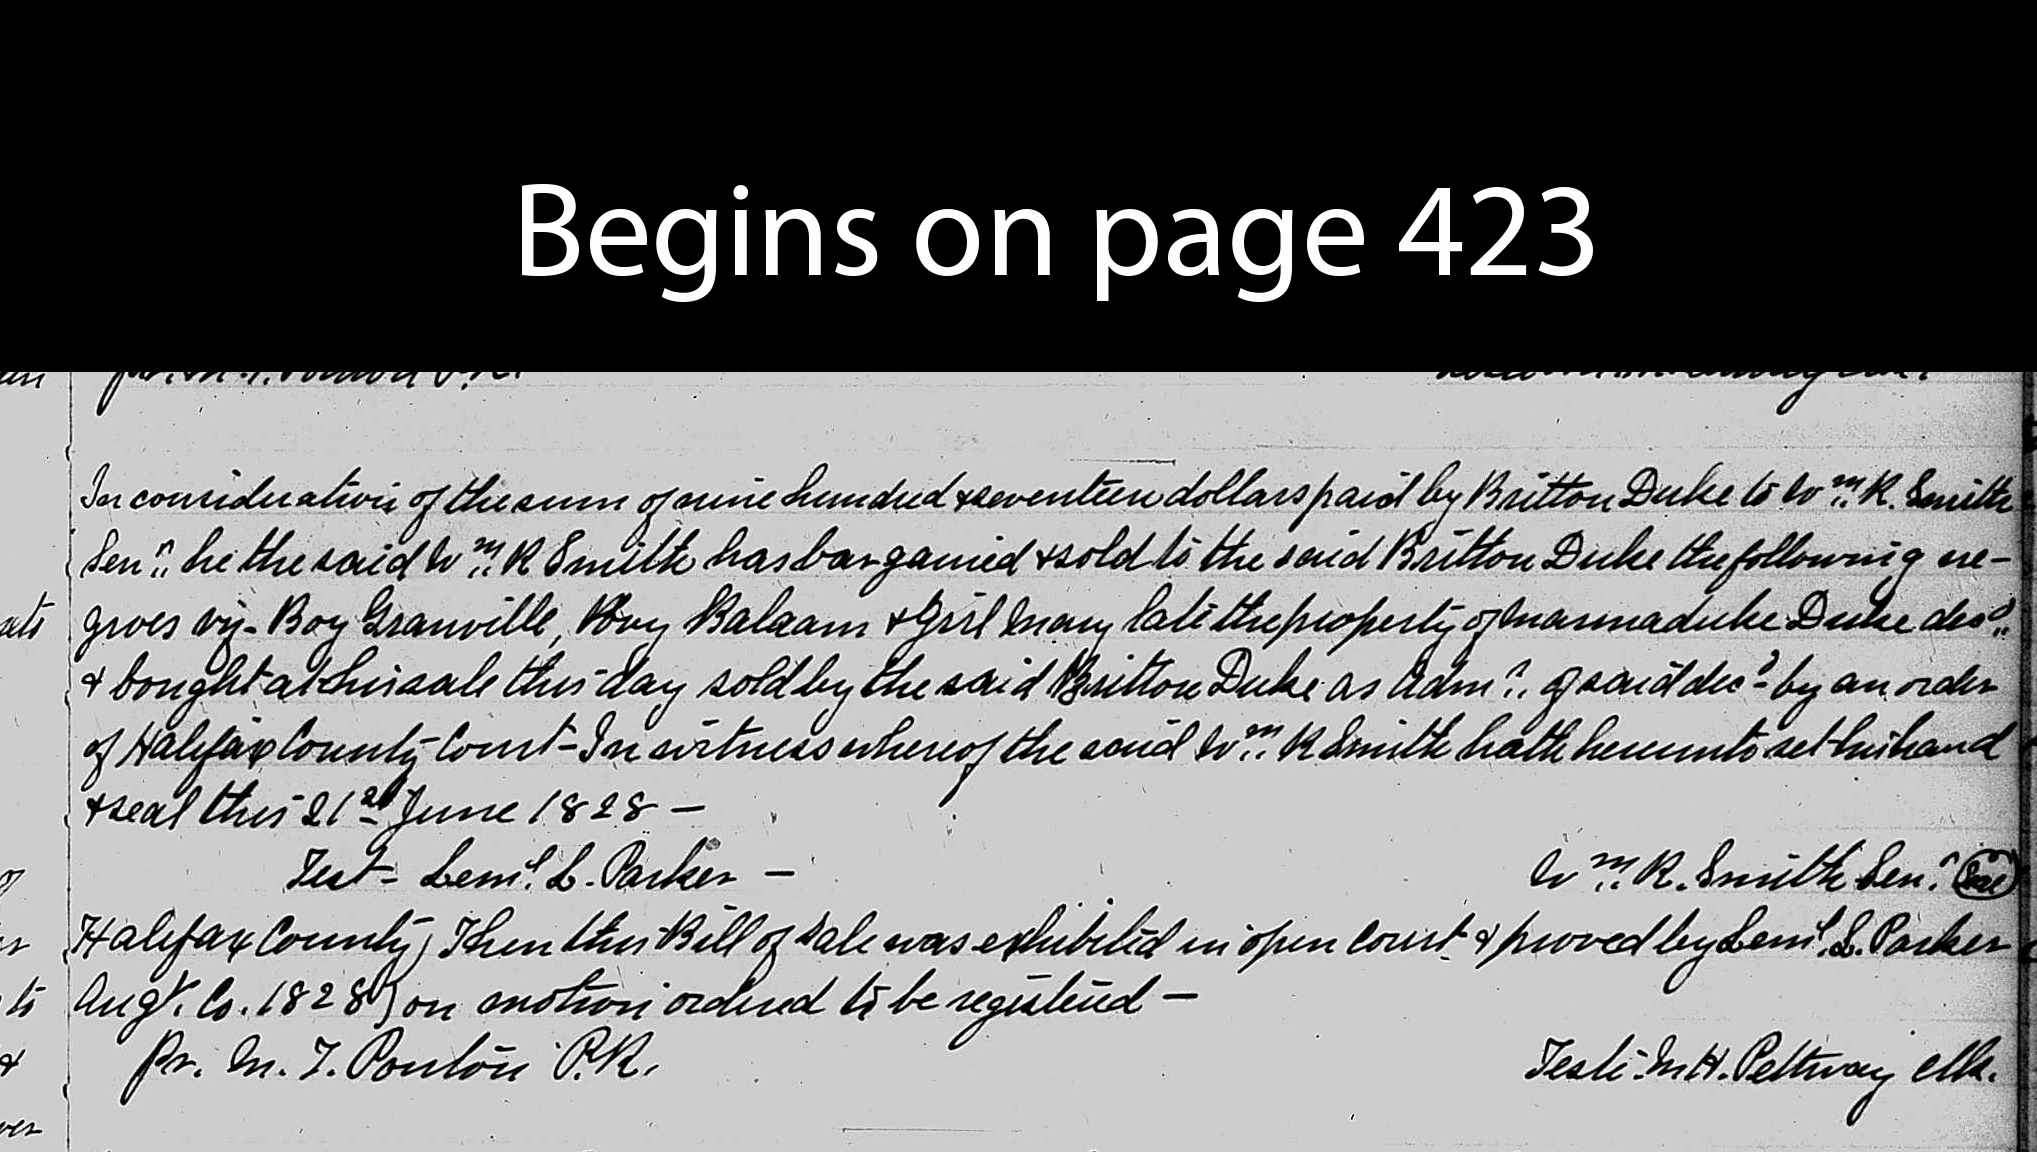 Begins on page 423
In consideration of the sum of nine hundred & seventeen dollars paid by Britton Duke to Wm. R. Smith
Senr. he the said Wm. R Smith has bargained & sold to the said Britton Duke the following ne-
groes viz- Boy Granville, Boy Balaam & Girl Mary late the property of Marmaduke Duke decd.
& bought at his sale this day sold by the said Britton Duke as Admr. of said decd by an order
of Halifax County Court- In witness whereof the said Wm. R Smith hath hereunto set his hand
& seal this 21st June 1828 —
Test- Leml. L. Parker —
Wm. R. Smith Senr. Seal
Halifax County) Then this Bill of Sale was exhibited in open Court & proved by Leml. L. Parker
Augt. Co. 1828) on motion ordered to be registered —
Pr. M. T. Ponton P.R.
Teste M H. Pettway Clk.